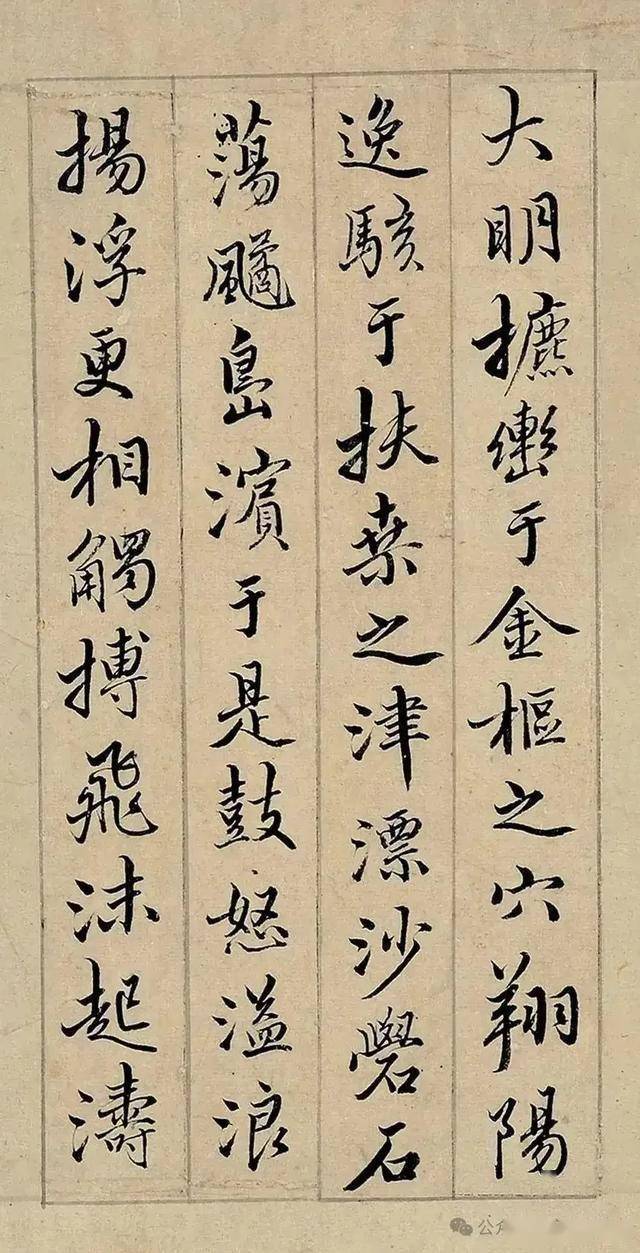 大明㩠轡于金樞之穴翔陽
逸駭于扶桒之津漂沙礐石
蕩䬍島濱于是鼓怒溢浪
揚浮更相觸搏飛沫起濤